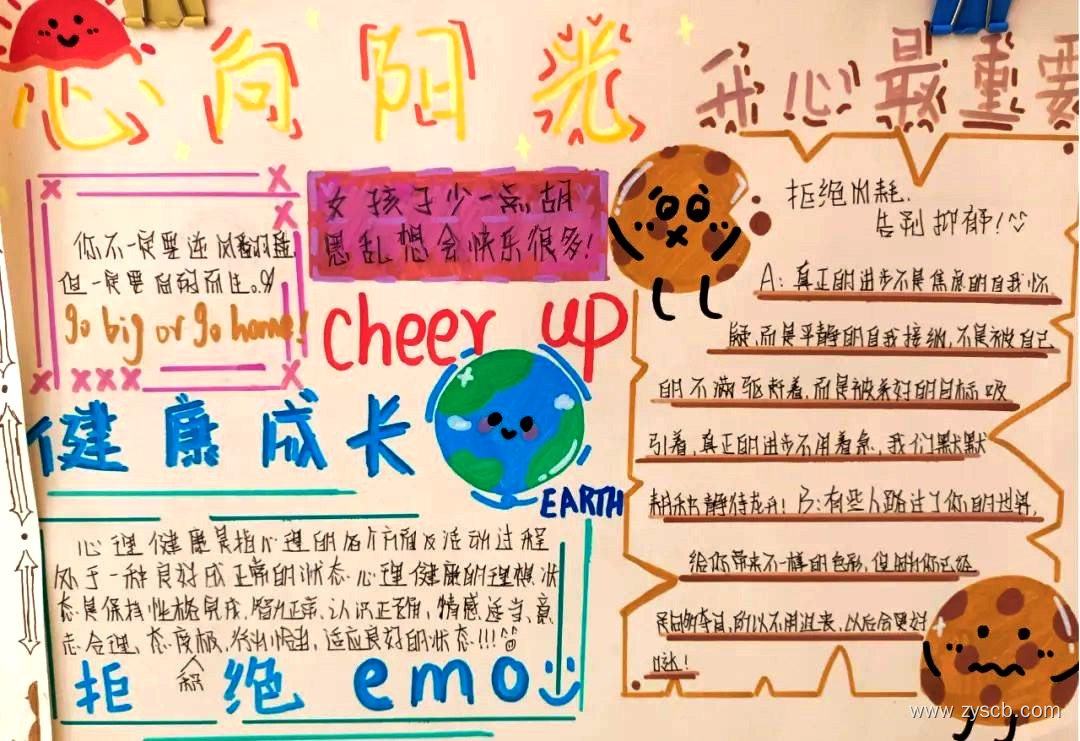 心向阳光
开心最重要
你不一定要逆风翻盘
但一定要向阳而生。
go big or go home!
女孩子少一点胡
思乱想会快乐很多!
cheer up
健康成长
EARTH
心理健康是指心理的各个方面及活动过程
处于一种良好或正常的状态.心理健康的理想状
态是保持性格完好,智力正常,认识正确,情感适当,意
志合理,态度极,行为恰当,适应良好的状态!!!
积
拒绝emo
拒绝内耗.
告别抑郁!
A:真正的进步不是焦虑的自我怀
疑,而是平静的自我接纳,不是被自己
的不满驱赶着,而是被美好的目标吸
引着,真正的进步不用着急,我们默默
耕耘静待花开!B:有些人路过了你的世界,
给你带来不一样的色彩,但
所以不用过去,以后会更好
哒!
www.zyscb.com